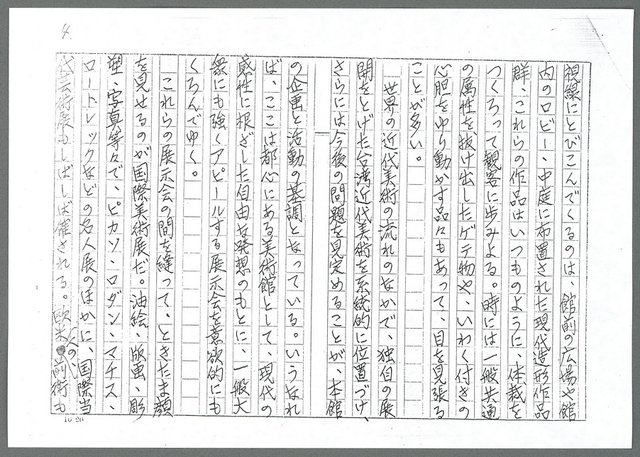 4.
視線にとびこんでくるのは、館前の広場や館
内のロビー・中庭に布置された現代造形作品
群、これらの作品はいつものように、体裁を
つくろって観客に歩みよる。時には一般共通
の属性を抜け出したゲテ物や、いわく付きの
心胆をゆり動かす品々もあって、目を見張る
ことが多い。
世界の近代美術の流れのなかで、独自の展
開をとげた台湾近代美術を系統的に位置づけ、
さらには今後の問題を見定めることが、本館
の企画と活動の基調となっている。いうなれ
ば、ここは都心にある美術館として、現代の
感性に根ざした自由な発想のもとに、一般大
衆にも強くアピールする展示会を意欲的にも
くろんでゆく。
これらの展示会の間を縫って、ときたま顔
を見せるのが国際美術展だ。油絵、版画、彫
塑、写真等々で、ピカソ、ロダン、マチス、
ロートレックなどの名人展のほかに、国際当
代芸術展もしばしば催される。欧米の前衛も